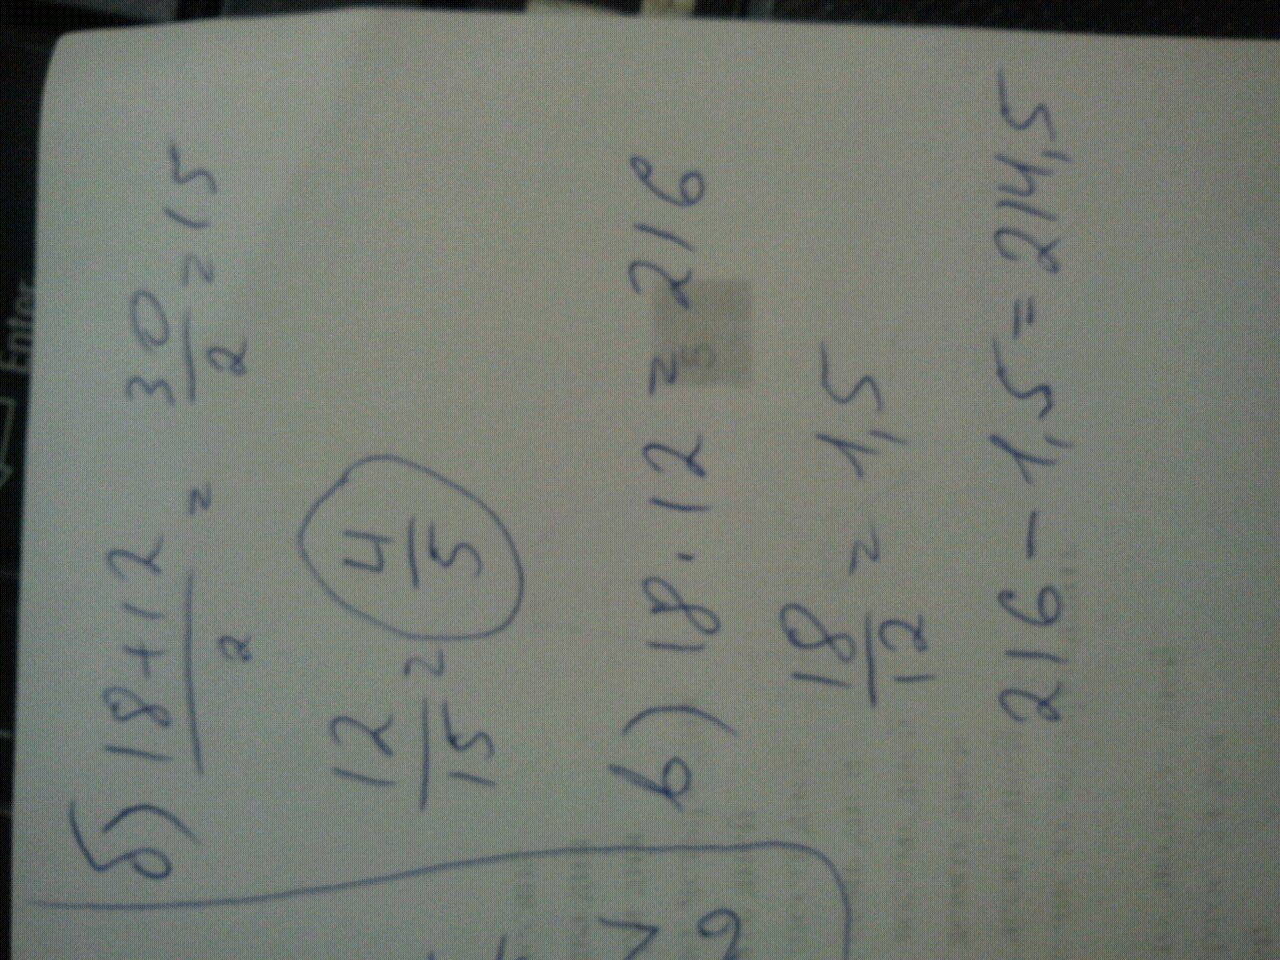 б) 18+12/2 = 30/2 = 15
12/15 = 4/5
в) 18 · 12 = 216
18/12 = 1,5
216 - 1,5 = 214,5
Enter